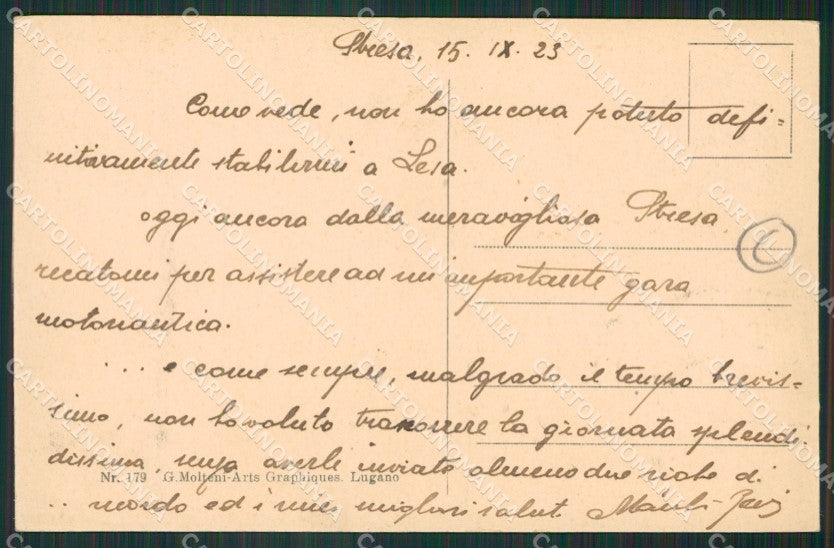 Stresa, 15. IX. 23
Come vede, non ho ancora potuto defi-
nitivamente stabilirmi a Lesa.
oggi ancora dalla meravigliosa Stresa
recatomi per assistere ad un'importante gara
motonautica.
... e come sempre, malgrado il tempo brevis-
simo, non ho voluto trascorrere la giornata splendi-
dissima, senza averle inviato almeno due righe di
.. ricordo ed i miei migliori saluti.
Nr. 179 G. Molteni-Arts Graphiques. Lugano
CARTOLINOMANIA